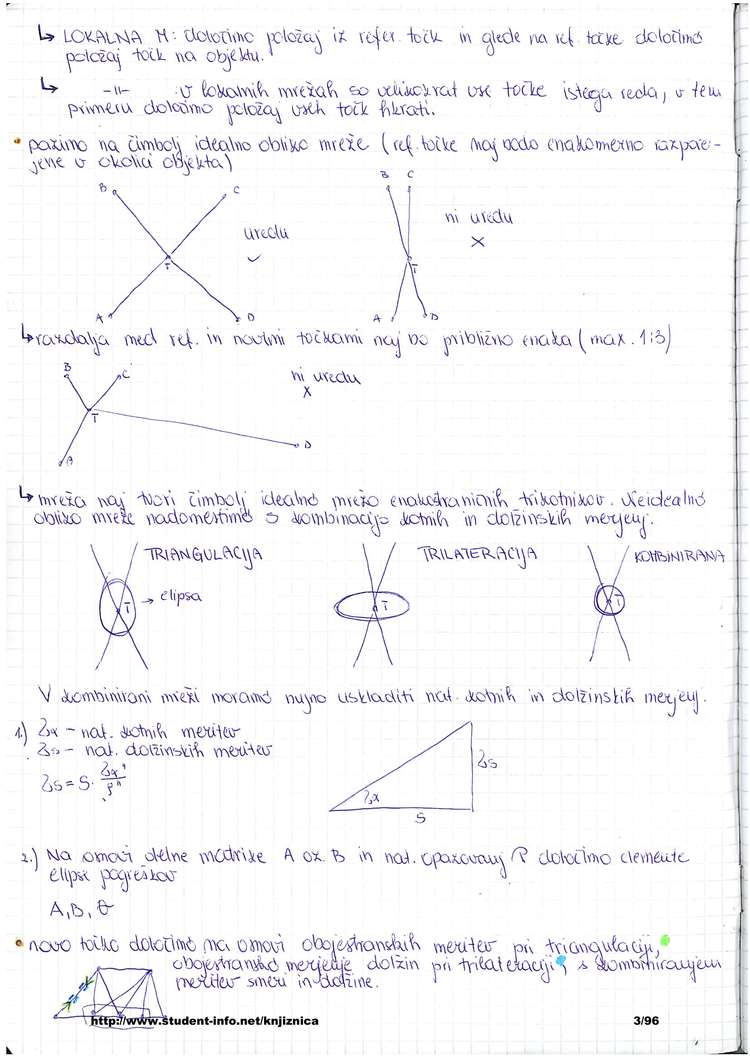 ↳ LOKALNA M: določimo položaj iz refer. točk in glede na ref. točke določimo
položaj točk na objektu.
↳ -11- v lokalnih mrežah so velikokrat vse točke istega reda, v tem
primeru določimo položaj vseh točk hkrati.
• pazimo na čimbolj idealno obliko mreže (ref. točke naj bodo enakomerno razpore-
jene v okolici objekta)
B C
B C
uredu
ni uredu
T
T
A D
A D
↳ razdalja med ref. in novimi točkami naj bo približno enaka (max. 1:3)
B C
ni uredu
T
D
A
↳ mreža naj tvori čimbolj idealno mrežo enakostraničnih trikotnikov. Neidealno
obliko mreže nadomestimo s kombinacijo kotnih in dolžinskih merjenj.
TRIANGULACIJA TRILATERACIJA KOMBINIRANA
→ elipsa
T T T
V kombinirani mreži moramo nujno uskladiti nat. kotnih in dolžinskih merjenj.
1.) - nat. kotnih meritev
- nat. dolžinskih meritev
S
2.) Na osnovi delne matrike A oz. B in nat. opazovanj P določimo elemente
elips pogreškov
A, B, θ
• novo točko določimo na osnovi obojestranskih meritev pri triangulaciji,
obojestransko merjenje dolžin pri trilateraciji, s kombiniranjem
meritev smeri in dolžine.
http://www.student-info.net/knjiznica 3/96